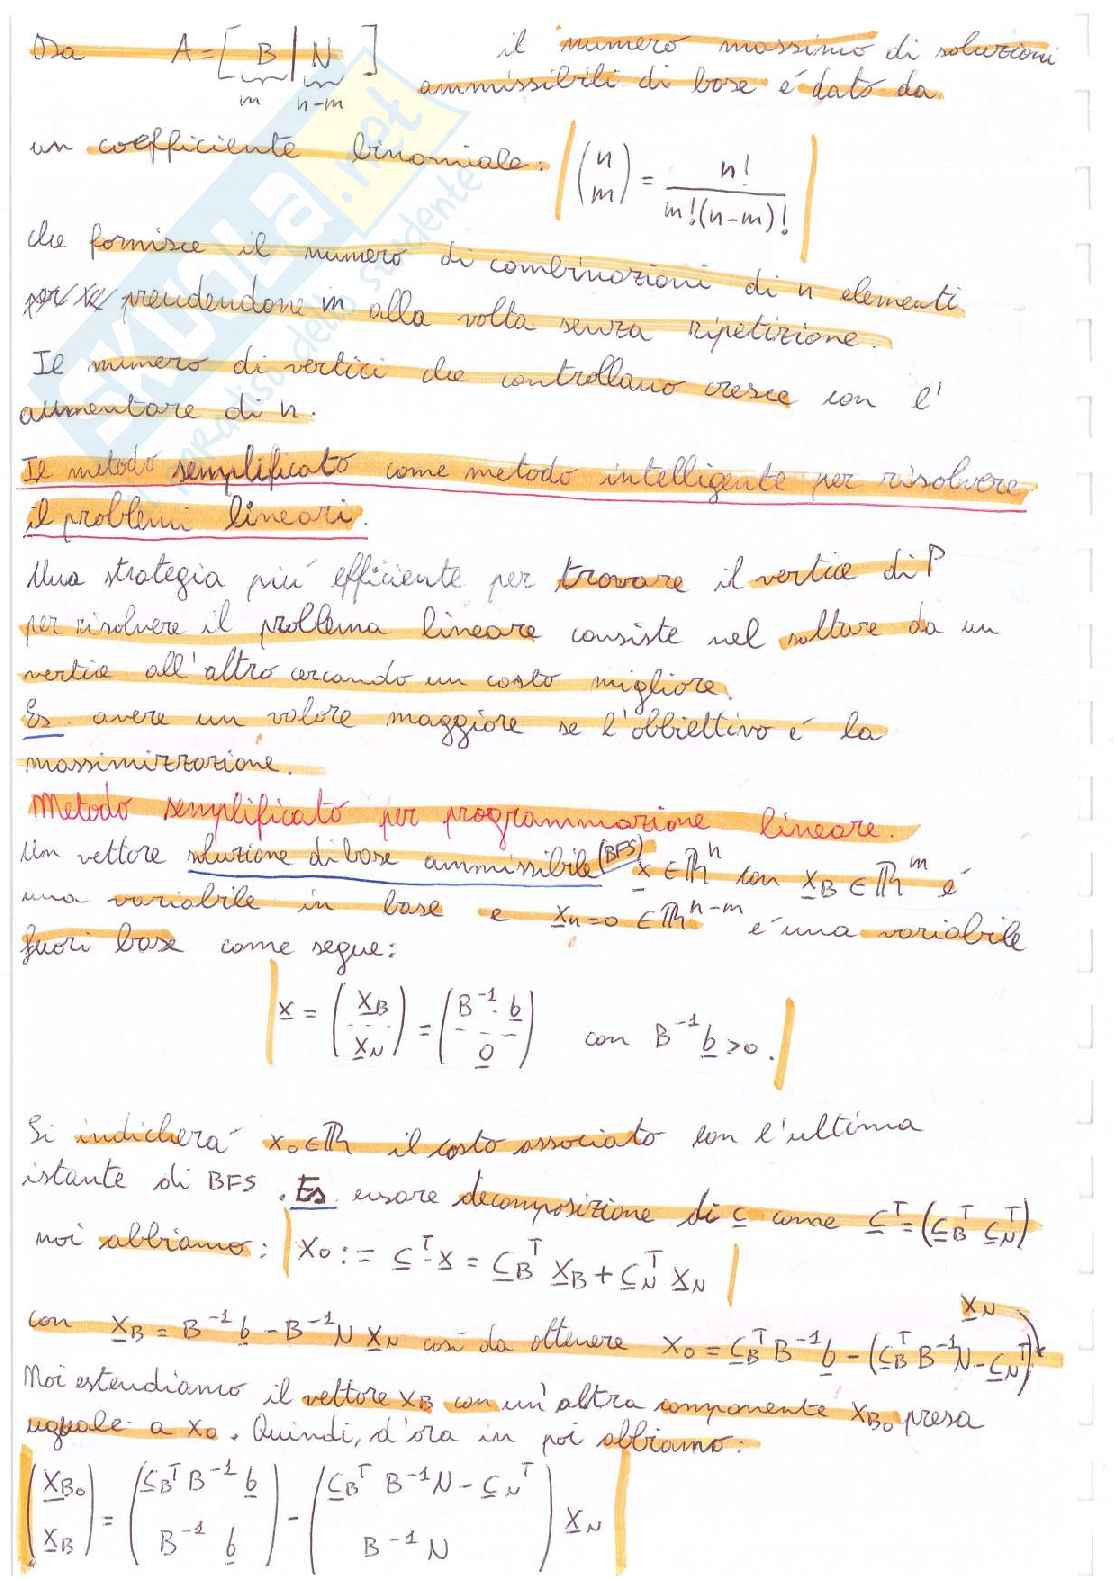 Da A = [ B | N ] il numero massimo di soluzioni
m n-m ammissibili di base é dato da
un coefficiente binomiale: (n m) = n! / m!(n-m)!
che fornisce il numero di combinazioni di n elementi
prendendone m alla volta senza ripetizione.
Il numero di vertici che controllano cresce con l'
aumentare di n.
Il metodo semplificato come metodo intelligente per risolvere
il problemi lineari.
Una strategia piú efficiente per trovare il vertice di P
per risolvere il problema lineare consiste nel saltare da un
vertice all'altro cercando un costo migliore.
Es. avere un valore maggiore se l'obbiettivo é la
massimizzazione.
Metodo semplificato per programmazione lineare.
Un vettore soluzione di base ammissibile (BFS) x ∈ ℝⁿ con x_B ∈ ℝᵐ é
una variabile in base e x_n=0 ∈ ℝⁿ⁻ᵐ é una variabile
fuori base come segue:
x = (x_B / x_N) = (B⁻¹·b / 0) con B⁻¹b >0.
Si indicherá x₀∈ℝ il costo associato con l'ultima
istante di BFS. Es. usare decomposizione di c come cᵀ=(c_Bᵀ c_Nᵀ)
noi abbiamo: x₀ := cᵀ·x = c_Bᵀ x_B + c_Nᵀ x_N
con x_B = B⁻¹b - B⁻¹N x_N cosí da ottenere x₀ = c_Bᵀ B⁻¹b - (c_Bᵀ B⁻¹N - c_Nᵀ) x_N
Noi estendiamo il vettore x_B con un'altra componente x_B₀ presa
uguale a x₀. Quindi, d'ora in poi abbiamo:
(x_B₀ / x_B) = (c_Bᵀ B⁻¹ b / B⁻¹ b) - (c_Bᵀ B⁻¹N - c_Nᵀ / B⁻¹N) x_N
SKUOLA.net
il paradiso dello studente